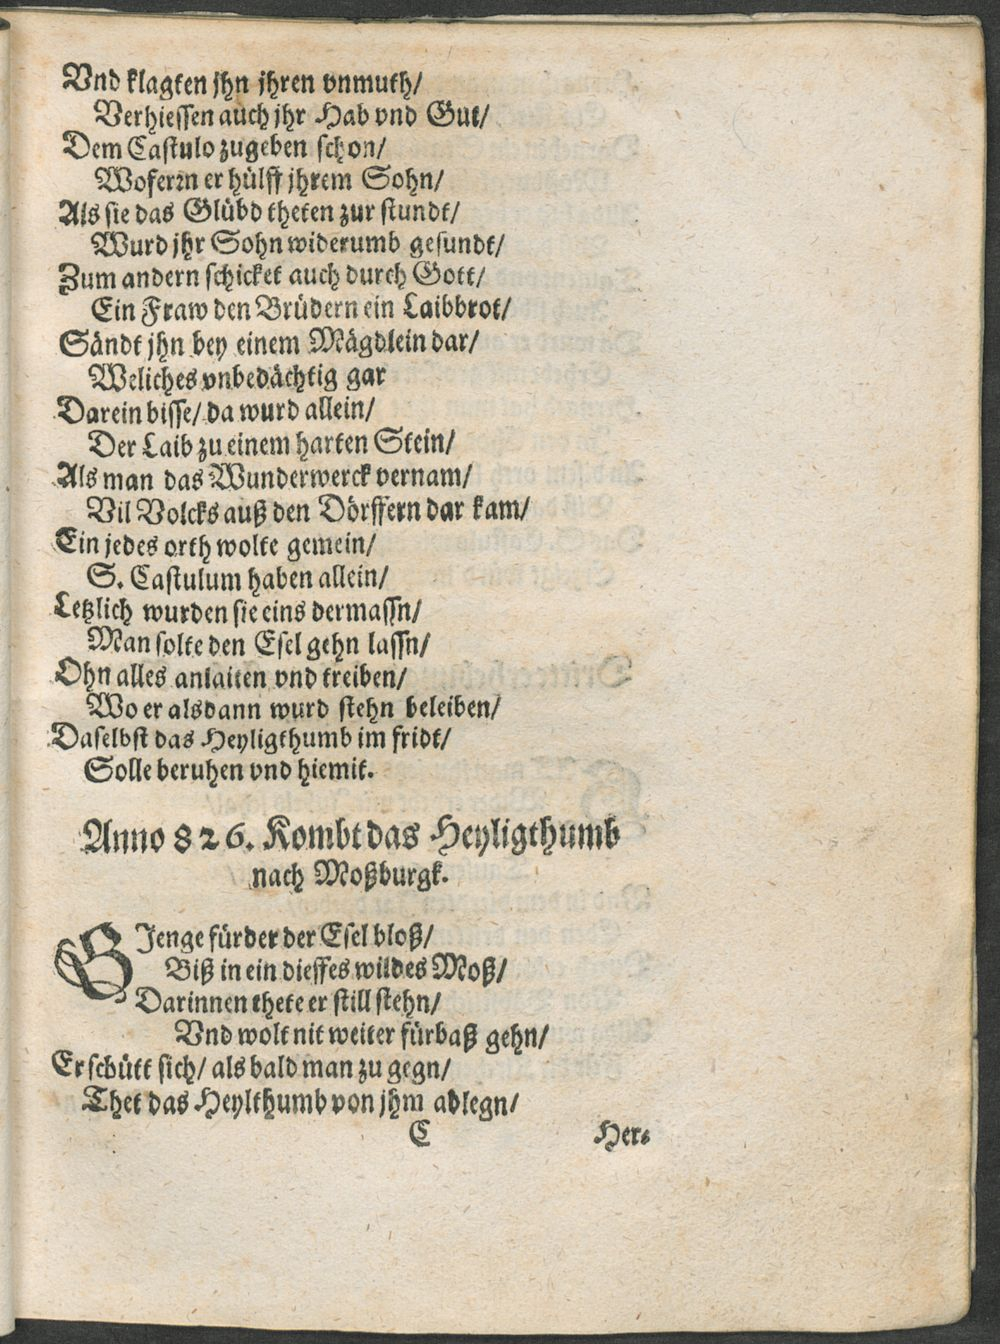 Vnd klagten jhn jhren vnmuth/
Verhiessen auch jhr Hab vnd Gut/
Dem Castulo zugeben schon/
Woferrn er hülff jhrem Sohn/
Als sie das Glübd theten zur stundt/
Wurd jhr Sohn widerumb gesundt/
Zum andern schicket auch durch Gott/
Ein Fraw den Brüdern ein Laibbrot/
Sändt jhn bey einem Mägdlein dar/
Weliches vnbedächtig gar
Darein bisse/ da wurd allein/
Der Laib zu einem harten Stein/
Als man das Wunderwerck vernam/
Vil Volcks auß den Dörffern dar kam/
Ein jedes orth wolte gemein/
S. Castulum haben allein/
Letzlich wurden sie eins dermassn/
Man solte den Esel gehn lassn/
Ohn alles anlaiten vnd treiben/
Wo er alsdann wurd stehn beleiben/
Daselbst das Heyligthumb im fridt/
Solle beruhen vnd hiemit.
Anno 826. Kombt das Heyligthumb
nach Moßburgk.
GJenge fürder der Esel bloß/
Biß in ein dieffes wildes Moß/
Darinnen thete er still stehn/
Vnd wolt nit weiter fürbaß gehn/
Er schütt sich/ als bald man zu gegn/
Thet das Heylthumb von jhm ablegn/
C Her-